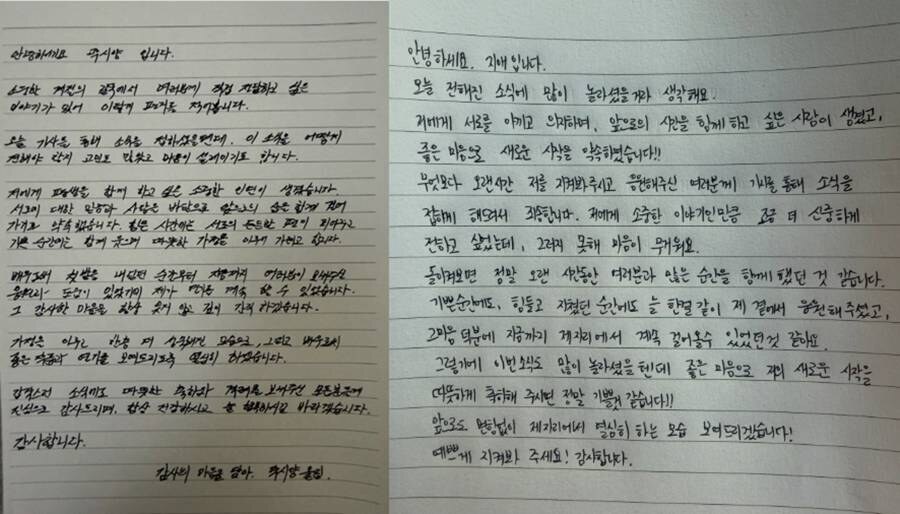 안녕하세요 곽시양 입니다.
소중한 계절의 길목에서 여러분께 직접 전달하고 싶은
이야기가 있어 이렇게 편지를 적어봅니다.
오늘 기사를 통해 소식을 접하셨을텐데, 이 소식을 어떻게
전해야 할지 고민도 많았고 마음이 설레이기도 합니다.
저에게 평생을 함께 하고 싶은 소중한 인연이 생겼습니다.
서로에 대한 믿음과 사랑을 바탕으로 앞으로의 삶을 함께 걸어
가기로 약속했습니다. 힘든 시간에는 서로의 든든한 편이 되어주고
기쁜 순간에는 함께 웃으며 따뜻한 가정을 이루어 가려고 합니다.
배우로서 첫발을 내딛던 순간부터 지금까지 여러분이 보내주신
응원과 도움이 있었기에 제가 연기를 계속 할 수 있었습니다.
그 감사한 마음을 항상 잊지 않고 깊이 간직하겠습니다.
가정을 이루는 만큼 더 성숙해진 모습으로, 그리고 배우로써
좋은 작품과 연기를 보여드리도록 열심히 하겠습니다.
갑작스러운 소식에도 따뜻한 축하와 격려를 보내주신 모든분들께
진심으로 감사드리며, 항상 건강하시고 늘 행복하시길 바라겠습니다.
감사합니다.
감사의 마음을 담아. 곽시양 올림.
안녕하세요. 지애입니다.
오늘 전해진 소식에 많이 놀라셨을거라 생각해요.
저에게 서로를 아끼고 의지하며, 앞으로의 시간을 함께 하고 싶은 사람이 생겼고,
좋은 마음으로 새로운 시작을 약속하였습니다!!
무엇보다 오랜시간 저를 지켜봐주시고 응원해주신 여러분께 기사를 통해 소식을
접하게 해드려서 죄송합니다. 저에게 소중한 이야기인만큼 조금 더 신중하게
전하고 싶었는데, 그러지 못해 마음이 무거워요.
돌이켜보면 정말 오랜 시간동안 여러분과 많은 순간을 함께 했던 것 같습니다.
기쁜순간에도, 힘들고 지쳤던 순간에도 늘 한결 같이 제 곁에서 응원해 주셨고,
그마음 덕분에 지금까지 제자리에서 계속 걸어올수 있었던것 같아요.
그렇기에 이번소식도 많이 놀라셨을 텐데 좋은 마음으로 저의 새로운 시작을
따뜻하게 축하해 주시면 정말 기쁠것 같습니다!!
앞으로도 변함없이 제자리에서 열심히 하는 모습 보여드리겠습니다!
예쁘게 지켜봐 주세요! 감사합니다.